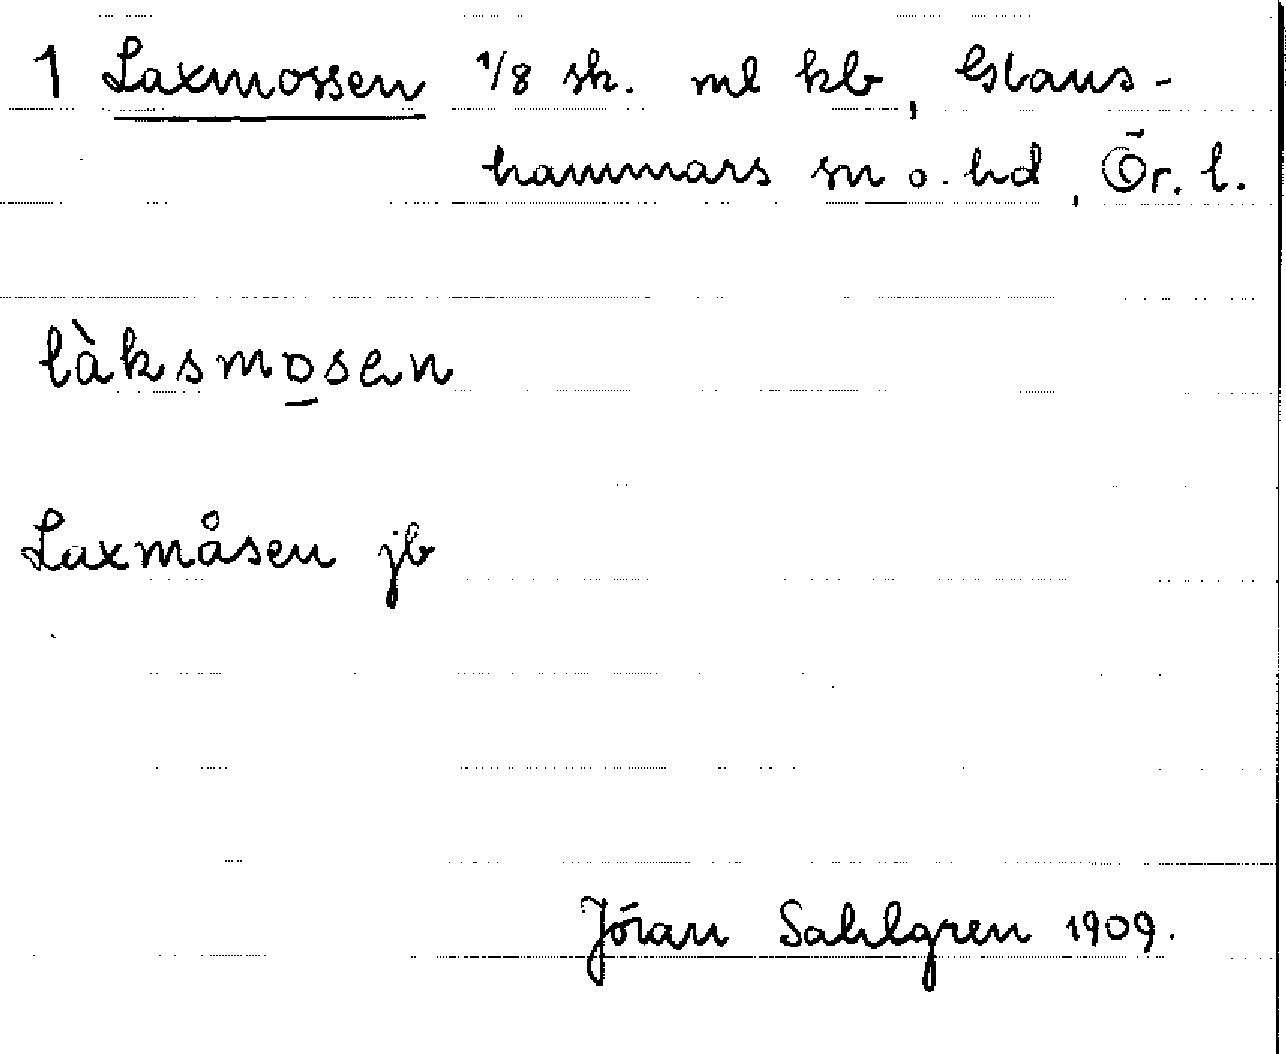 1 Laxmossen 1/8 sk. ml kb, Glans-
hammars sn o. hd, Ör. l.
làksmosen
Laxmåsen jb
Jöran Sahlgren 1909.